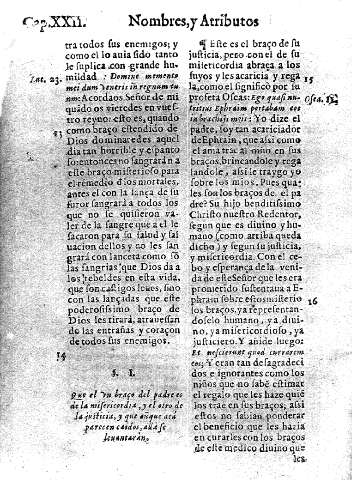 Cap. XXII.
Nombres, y Atributos
tra todos sus enemigos; y
como el lo auia sido tanto
le suplica con grande hu-
mildad: Domine memento
Luc. 23.
mei dum veneris in regnum tu-
um: Acordaos Señor de mi
quãdo os vieredes en vues-
tro reyno: esto es, quando
13
como braço estendido de
Dios domaredes aquel
dia tan horrible y espanto
so: entonces no sangrarà n
a este braço misterioso para
el remedio d'los mortales,
antes el con la lança de su
furor sangrarà a todos los
que no se quisieron va-
ler de la sangre que a el le
sacaron para su salud y sal
uacion dellos y no les san
grarà con lanceta como sõ
las sangrias que Dios da a
los rebeldes en esta vida,
que son castigos leues, sino
con las lançadas que este
poderosissimo braço de
Dios les tirarà, atrauessan
do las entrañas y coraçon
de todos sus enemigos.
14
§. I.
Que el vn braço del padre es
de la misericordia, y el otro de
la justicia, y que aunque acà
parecen caidos, allà se
leuantaràn.
¶ Este es el braço de su
justicia, pero con el de su
misericordia abraça a los
suyos y les acaricia y rega
15
la, como el significò por su
profeta Oseas: Ego quasi nu-
Osea. 11.
tritius Ephraim portabam eos
in brachijs meis: Yo dize el
padre, soy tan acariciador
de Ephrain, que assi como
el ama trae al niño en sus
braços, brincandole y rega
landole, assi le traygo yo
sobre los mios. Pues qua-
les son los braços de el pa-
dre? Su hijo benditissimo
Christo nuestro Redentor,
segun que es diuino y hu-
mano (como arriba queda
dicho) y segun su justicia,
y misericordia. Con el ce-
bo y esperança de la veni-
da de este Señor que les era
prometido sustentaua a E-
phrain sobre estos misterio
16
los braços, ya representan-
doselo humano, ya diui-
no, ya misericordioso, ya
justiciero. Y añide luego:
Et nescierunt quod curarem
eos: Y eran tan desagradeci
dos e ignorantes como los
niños que no sabẽ estimar
el regalo que les haze quiẽ
los trae en sus braços, assi
estos no sabian ponderar
el beneficio que les hazia
en curarles con los braços
de este medico diuino que
les